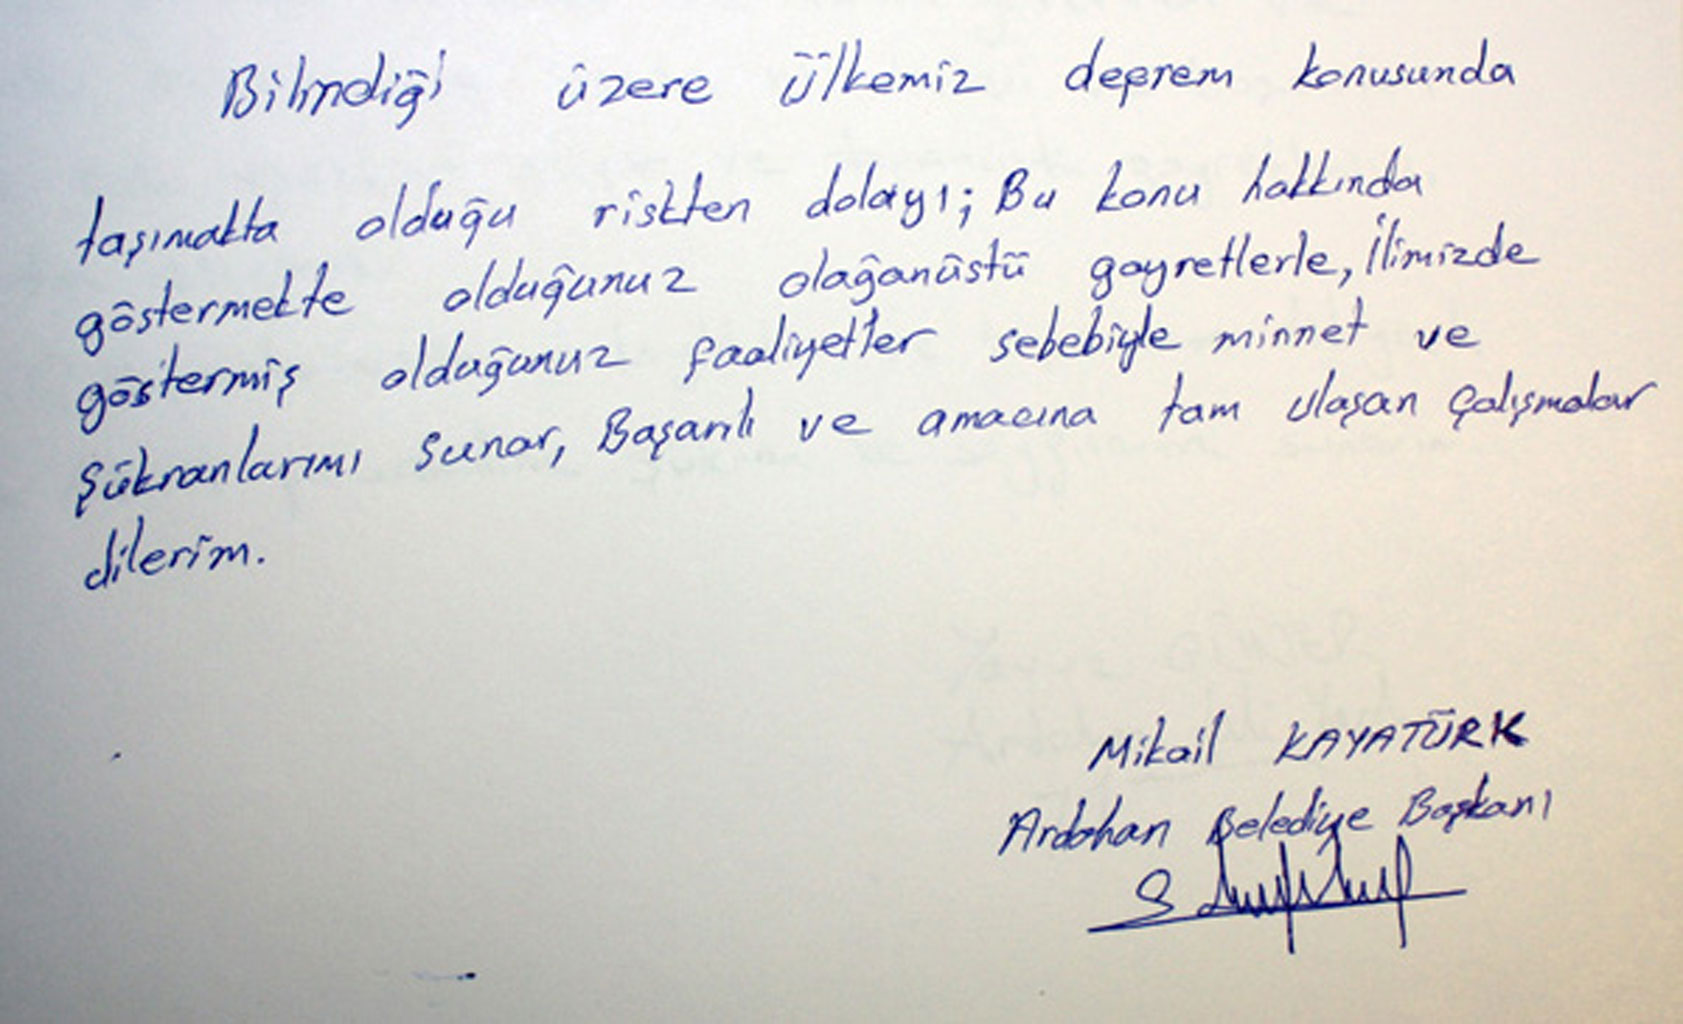 Bilindiği üzere ülkemiz deprem konusunda
taşımakta olduğu riskten dolayı; Bu konu hakkında
göstermekte olduğunuz olağanüstü gayretlerle, İlimizde
göstermiş olduğunuz faaliyetler sebebiyle minnet ve
şükranlarımı sunar, Başarılı ve amacına tam ulaşan çalışmalar
dilerim.
Mikail KAYATÜRK
Ardahan Belediye Başkanı